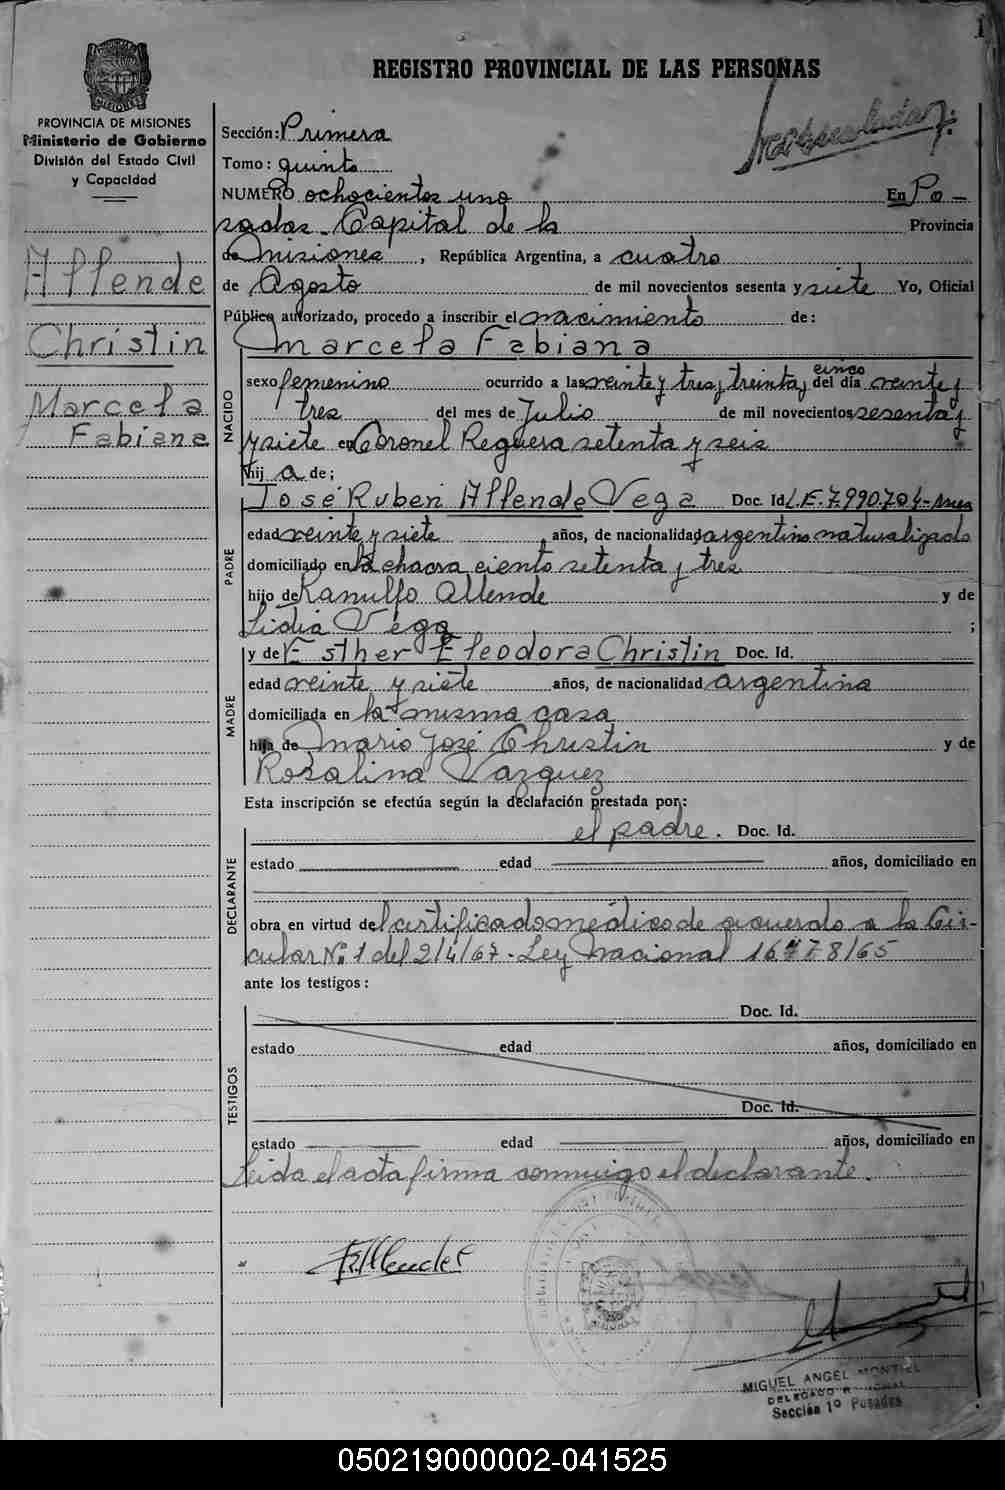 1
REGISTRO PROVINCIAL DE LAS PERSONAS
PROVINCIA DE MISIONES
Ministerio de Gobierno
División del Estado Civil
y Capacidad
Allende
Christin
Marcela
Fabiana
Sección: Primera
Tomo: quinto
NUMERO ochocientos uno En Po-
sadas Capital de la Provincia
de Misiones, República Argentina, a cuatro
de Agosto de mil novecientos sesenta y siete Yo, Oficial
Público autorizado, procedo a inscribir el nacimiento de:
Marcela Fabiana
NACIDO
sexo femenino ocurrido a las veinte y tres, treinta y cinco del día veinte y
tres del mes de Julio de mil novecientos sesenta y
y siete en Coronel Reguera setenta y seis
hij a de;
PADRE
José Ruben Allende Vega Doc. Id L.E. 7.990.704-
edad veinte y siete años, de nacionalidad argentino naturalizado
domiciliado en la chacra ciento setenta y tres
hijo de Ranulfo Allende y de
Lidia Vega ;
MADRE
y de Esther Eleodora Christin Doc. Id.
edad veinte y siete años, de nacionalidad argentina
domiciliada en la misma casa
hija de Mario José Christin y de
Rosalina Vazquez
Esta inscripción se efectúa según la declaración prestada por:
DECLARANTE
el padre. Doc. Id.
estado edad años, domiciliado en
obra en virtud del certificado médico de acuerdo a la Cir-
cular Nº 1 del 2/4/67 - Ley Nacional 16478/65
ante los testigos:
TESTIGOS
Doc. Id.
estado edad años, domiciliado en
Doc. Id.
estado edad años, domiciliado en
Leida el acta firma conmigo el declarante.
MIGUEL ANGEL MONTIEL
DELEGADO
Sección 1º Posadas
050219000002-041525